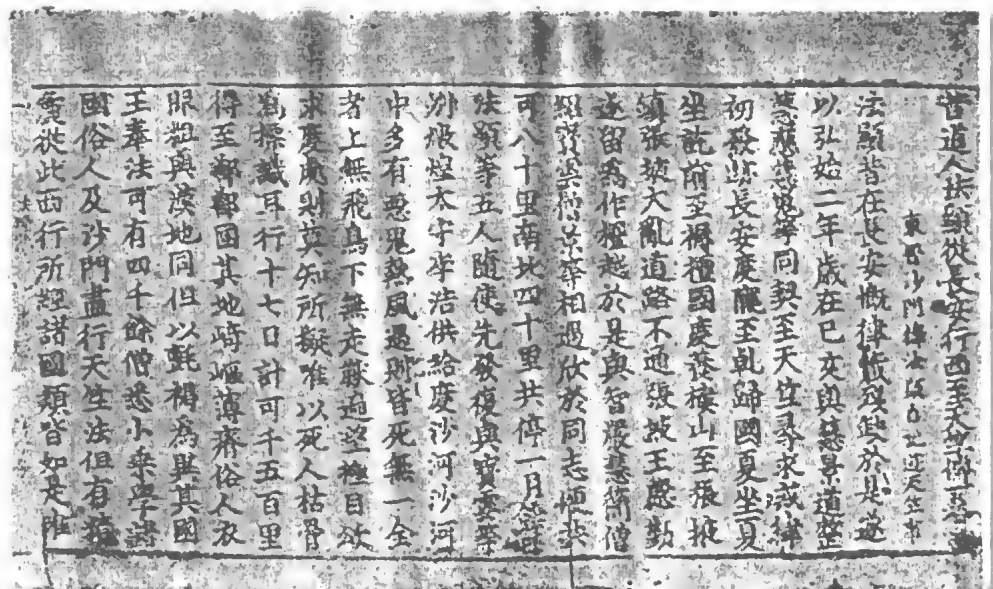 晉道人法顯從長安行西至天竺傳一卷
東晉沙門釋法顯自記遊天竺事
法顯昔在長安慨律藏殘缺於是遂
以弘始二年歲在己亥與慧景道整
慧應慧嵬等同契至天竺尋求戒律
初發跡長安度隴至乾歸國夏坐夏
坐訖前至褥檀國度養樓山至張掖
鎮張掖大亂道路不通張掖王慇懃
遂留為作檀越於是與智嚴慧簡僧
紹寶雲僧景等相遇欣於同志便共
可八十里南北四十里共停一月餘日
法顯等五人隨使先發復與寶雲等
別燉煌太守李浩供給度沙河沙河
中多有惡鬼熱風遇則皆死無一全
者上無飛鳥下無走獸遍望極目欲
求度處則莫知所擬唯以死人枯骨
為標幟耳行十七日計可千五百里
得至鄯鄯國其地崎嶇薄瘠俗人衣
服粗與漢地同但以氈褐為異其國
王奉法可有四千餘僧悉小乘學諸
國俗人及沙門盡行天竺法但有精
麁從此西行所經諸國類皆如是唯